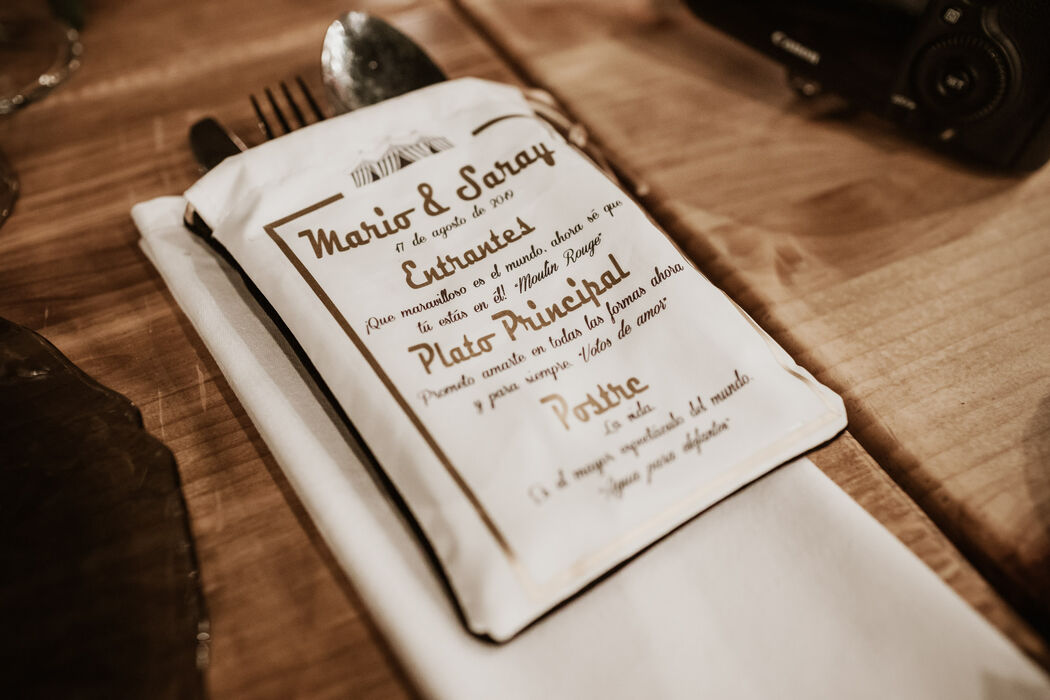 Mario & Saray
17 de agosto de 2019
Entrantes
¡Que maravilloso es el mundo, ahora sé que
tú estás en él! "Moulin Rouge"
Plato Principal
Prometo amarte en todas las formas ahora
y para siempre. "Votos de amor"
Postre
La vida.
Es el mayor espectáculo del mundo.
"Agua para elefantes"
Canon